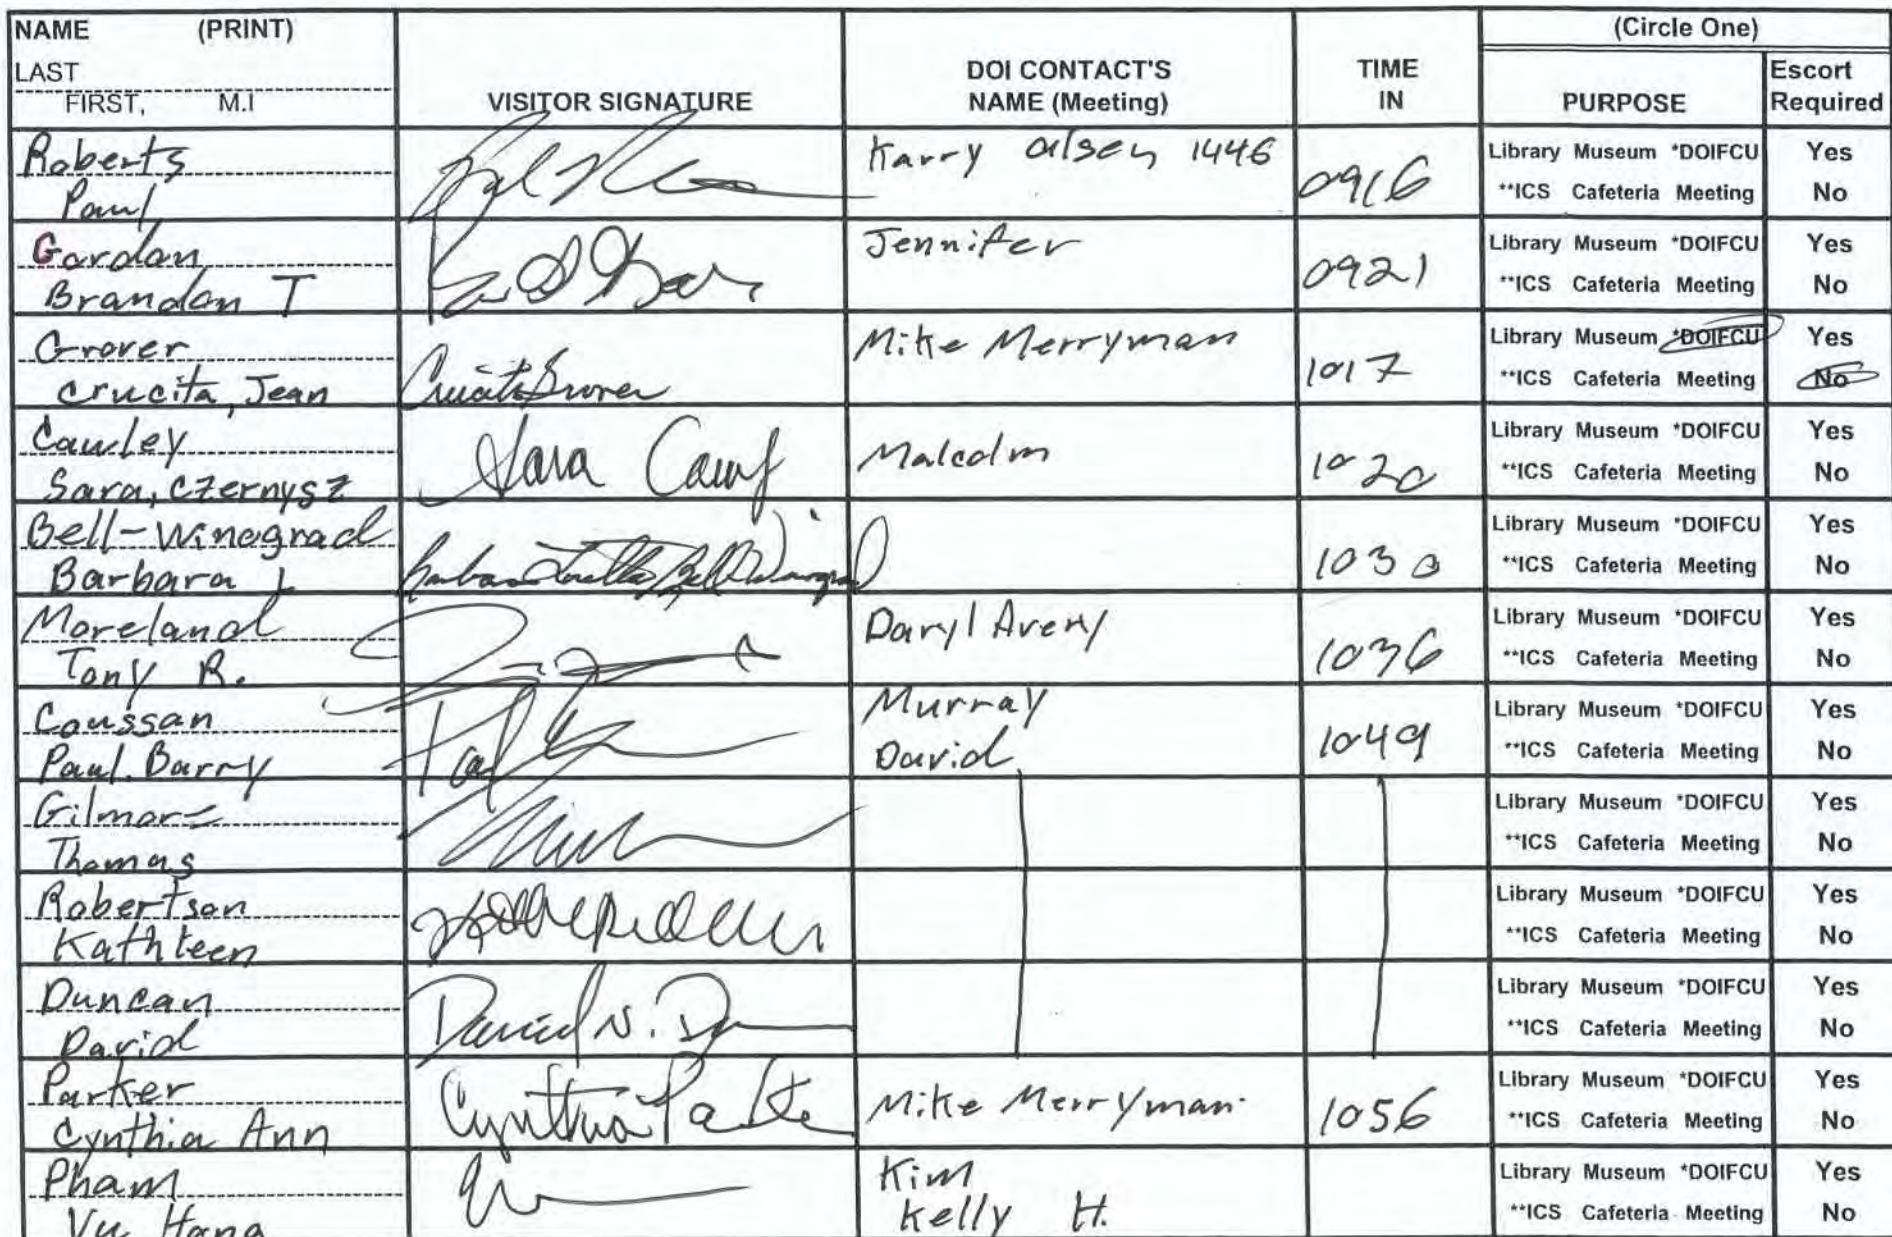 NAME (PRINT)
LAST
FIRST, M.I
VISITOR SIGNATURE
DOI CONTACT'S
NAME (Meeting)
TIME
IN
(Circle One)
PURPOSE
Escort
Required
Roberts
Paul
Karry Olsen 1446
0916
Library Museum *DOIFCU Yes
**ICS Cafeteria Meeting No
Gordon
Brandon T
Jennifer
0921
Library Museum *DOIFCU Yes
**ICS Cafeteria Meeting No
Grover
Crucita, Jean
Crucita Grover
Mike Merryman
1017
Library Museum *DOIFCU Yes
**ICS Cafeteria Meeting No
Cawley
Sara, Czernysz
Sara Cawley
Malcolm
1020
Library Museum *DOIFCU Yes
**ICS Cafeteria Meeting No
Bell-Winograd
Barbara L
Barbara Loretta Bell Winograd
1030
Library Museum *DOIFCU Yes
**ICS Cafeteria Meeting No
Moreland
Tony R.
Daryl Avery
1036
Library Museum *DOIFCU Yes
**ICS Cafeteria Meeting No
Coussan
Paul. Barry
Murray
David
1049
Library Museum *DOIFCU Yes
**ICS Cafeteria Meeting No
Gilmore
Thomas
Library Museum *DOIFCU Yes
**ICS Cafeteria Meeting No
Robertson
Kathleen
Library Museum *DOIFCU Yes
**ICS Cafeteria Meeting No
Duncan
David
David N.
Library Museum *DOIFCU Yes
**ICS Cafeteria Meeting No
Parker
Cynthia Ann
Cynthia Parker
Mike Merryman
1056
Library Museum *DOIFCU Yes
**ICS Cafeteria Meeting No
Pham
Vu Hang
Kim
Kelly H.
Library Museum *DOIFCU Yes
**ICS Cafeteria Meeting No